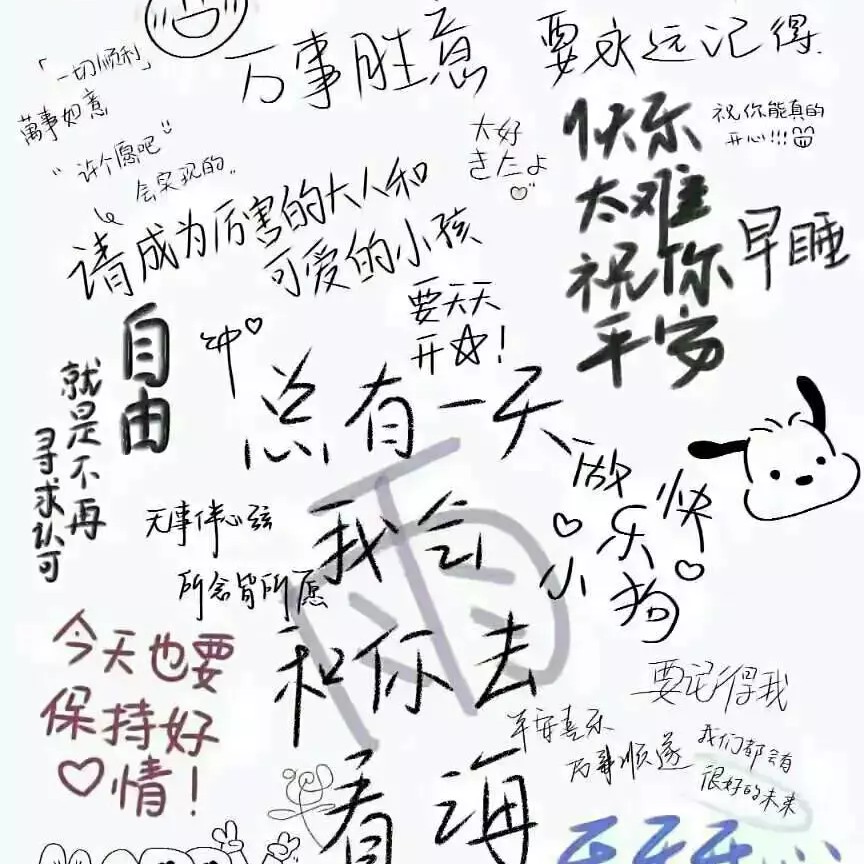 万事胜意
要永远记得.
「一切顺利」
萬事如意
"许个愿吧
会实现的"
大好
きだよ
快乐
太难
祝你
平安
祝你能真的
开心!!!
早睡
请成为厉害的大人和
可爱的小孩
要天天
开☆!
自由
就是不再
寻求认可
总有一天
我会
和你去
看海
雨
做
快
乐
小
狗
无事伴心弦
所念皆所愿
今天也要
保持好
♡情!
要记得我
平安喜乐
万事顺遂
我们都会有
很好的未来